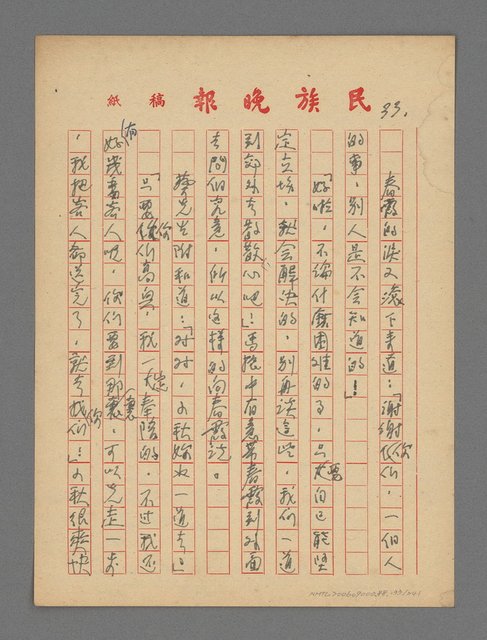 民族晚報稿紙
33.
春霞的淚又滾下來道：「謝謝你們，一個人
的事，別人是不會知道的！」
「好啦，不論什麼困難的事，只要自已能堅
定立場，就會解決的，別再談這些，我們一道
到郊外去散散心吧！」馬振中有意帶春霞到外面
去問個究竟，所以這樣的向春霞說。
蔡先生附和道：「對對，小秋妳也一道去」
「只要你們高興，我一定奉陪的，不過我還
有好幾書客人呢，你們要到那裏，可以先走一步
，我把客人都送完了，就去找你們！」小秋很爽快
NMTL20060900